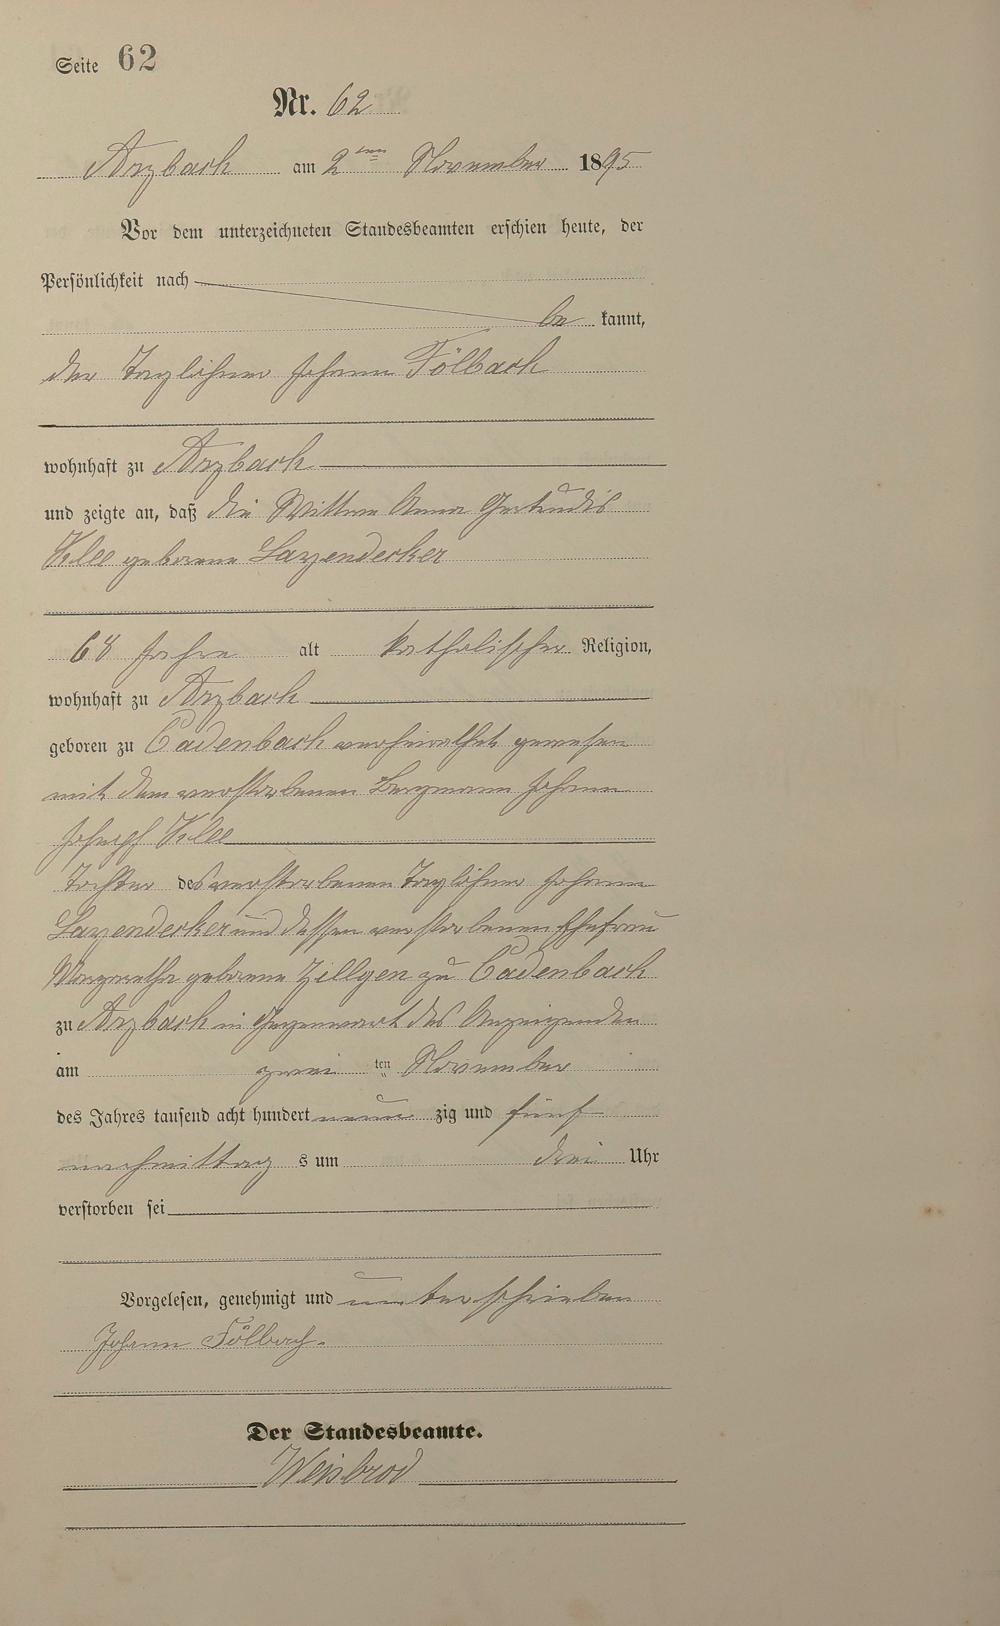 Seite 62
Nr. 62
Arzbach am 2ten November 1895
Vor dem unterzeichneten Standesbeamten erschien heute, der
Persönlichkeit nach
be kannt,
der Taglöhner Johann Fölbach
wohnhaft zu Arzbach
und zeigte an, daß die Wittwe Anna Gertrudis
Klee geborene Layendecker
68 Jahre alt katholischer Religion,
wohnhaft zu Arzbach
geboren zu Cadenbach verheirathet gewesen
mit dem verstorbenen Bergmann Johann
Joseph Klee
Tochter des verstorbenen Taglöhner Johann
Layendecker und dessen verstorbenen Ehefrau
Margaretha geborene Zillgen zu Cadenbach
zu Arzbach in Gegenwart des Anzeigenden
am zwei ten November
des Jahres tausend acht hundert neun zig und fünf
nachmittag s um drei Uhr
verstorben sei
Vorgelesen, genehmigt und unterschrieben
Johann Fölbach.
Der Standesbeamte.
Weisbrod